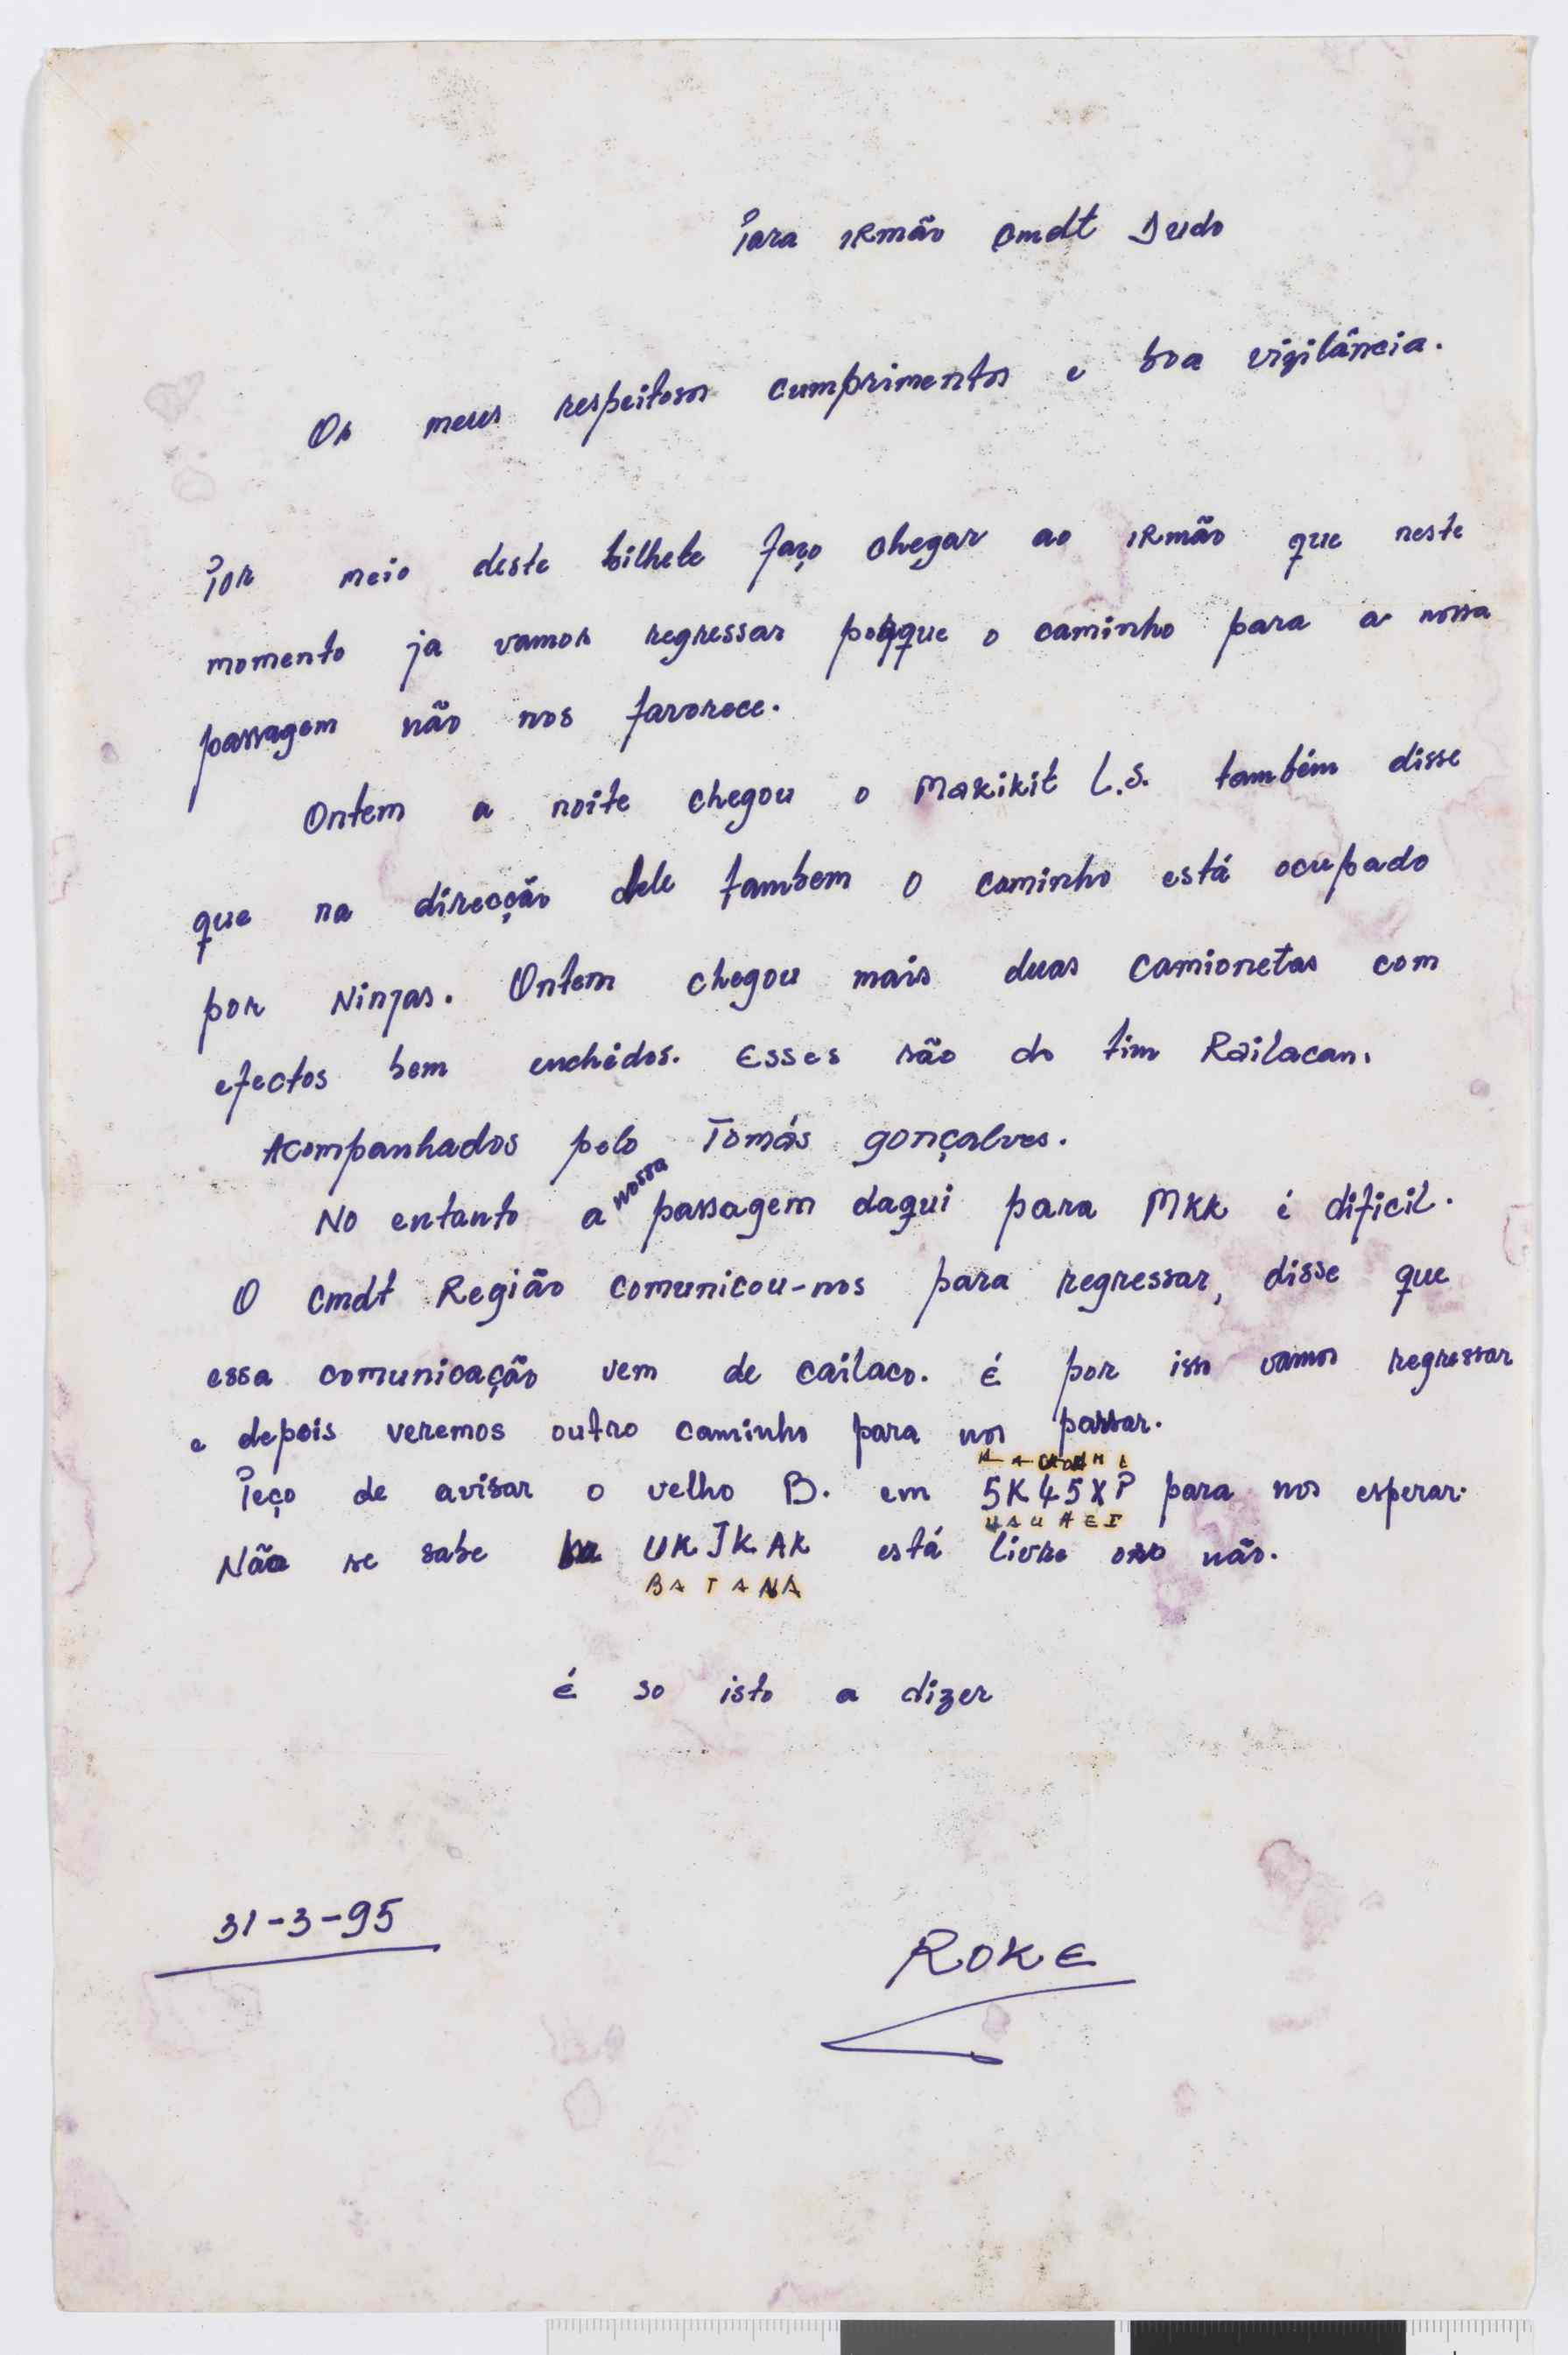 Para IRmão Cmdt Dudo
Os meus respeitosos cumprimentos e boa vigilância.
Por meio deste bilhete faço chegar ao IRmão que neste
momento ja vamos regressar porque o caminho para a nossa
passagem não nos favorece.
Ontem a noite chegou o Makikit L.S. também disse
que na direcção dele tambem o caminho está ocupado
por Ninjas. Ontem chegou mais duas camionetas com
efectos bem enchidos. Esses são do tim Railacan.
Acompanhados pelo Tomás gonçalves.
No entanto a nossa passagem daqui para MKK é dificil.
O Cmdt Região comunicou-nos para regressar, disse que
essa comunicação vem de cailaco. É por isso vamos regressar
e depois veremos outro caminho para nos passar.
Peço de avisar o velho B. em 5K45XP para nos esperar.
UAUHEI
Não se sabe UKJKAK está livre ou não.
BATANA
é so isto a dizer
31-3-95
ROKE